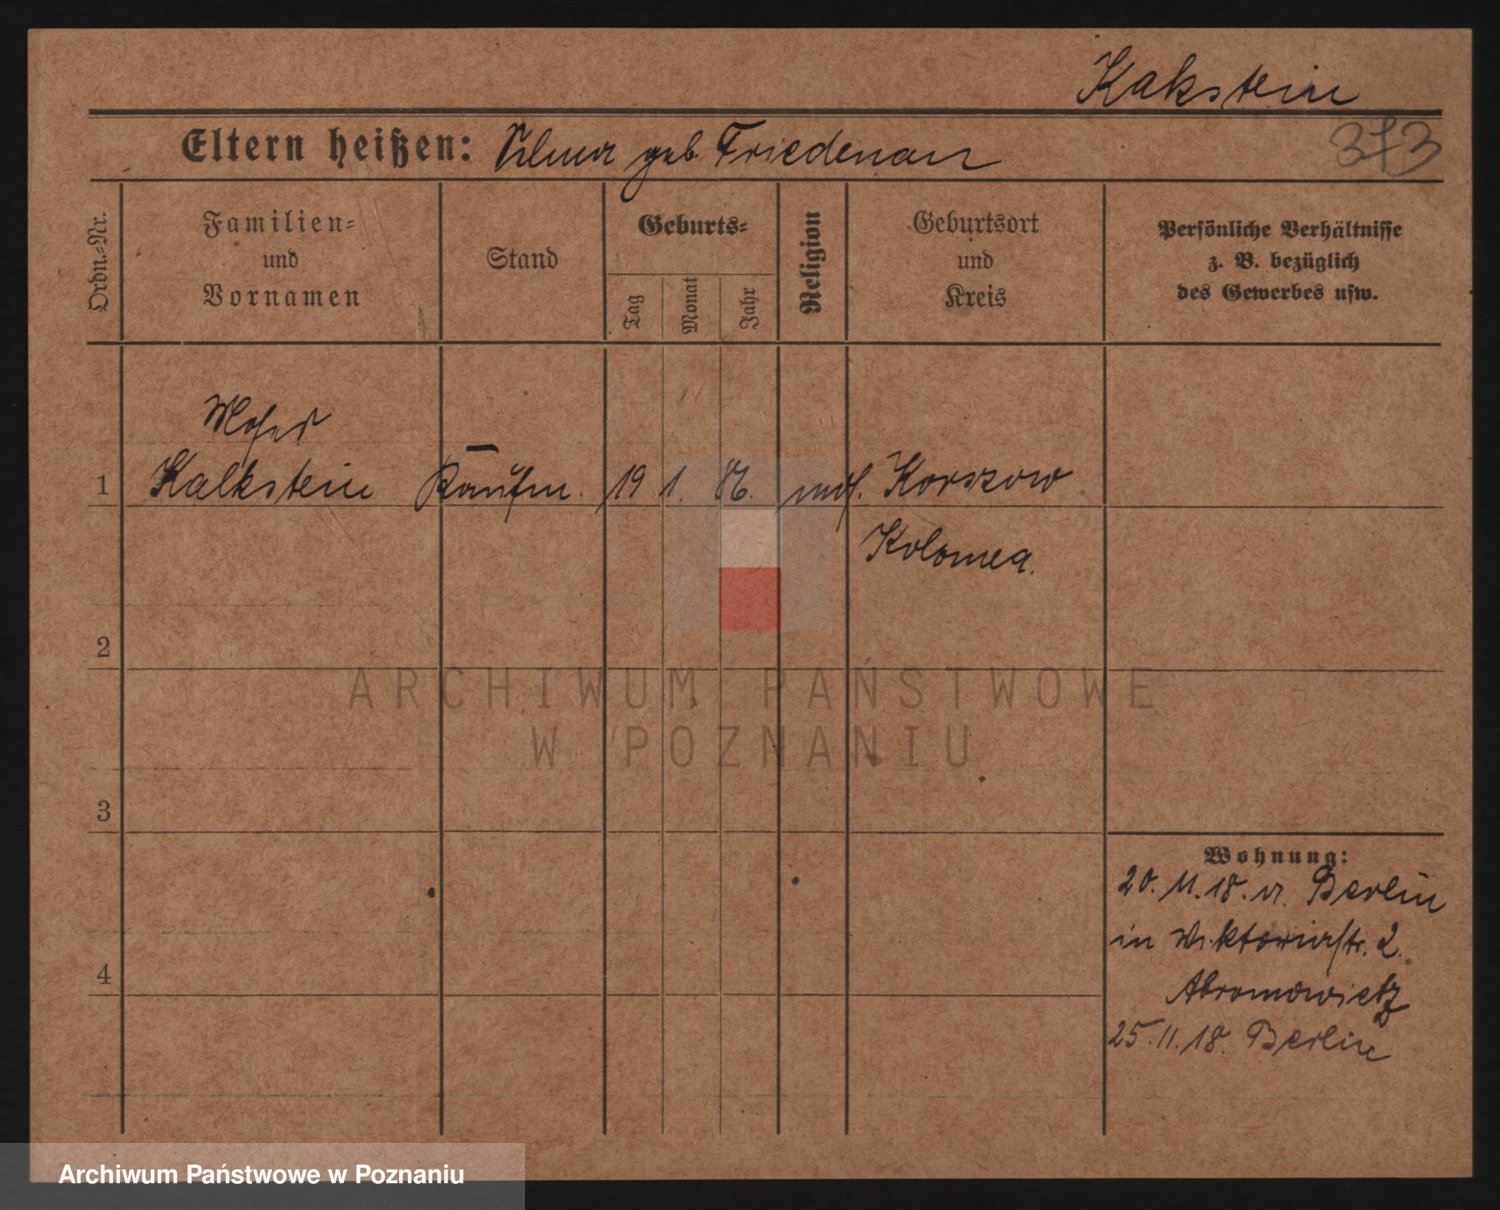 Kakstein
373
Eltern heißen: geb. Friedenau
Ordn.-Nr.
Familien-
und
Vornamen
Stand
Geburts-
Tag
Monat
Jahr
Religion
Geburtsort
und
Kreis
Persönliche Verhältnisse
z. B. bezüglich
des Gewerbes usw.
Moses
1 Kalkstein Kaufm. 19 1. 86. mos. Korszow
Kolomea.
2
3
4
Wohnung:
20. 11. 18. v. Berlin
in Viktoriastr. 2.
Abromowicz
25. 11. 18. Berlin
ARCHIWUM PAŃSTWOWE
W POZNANIU
Archiwum Państwowe w Poznaniu